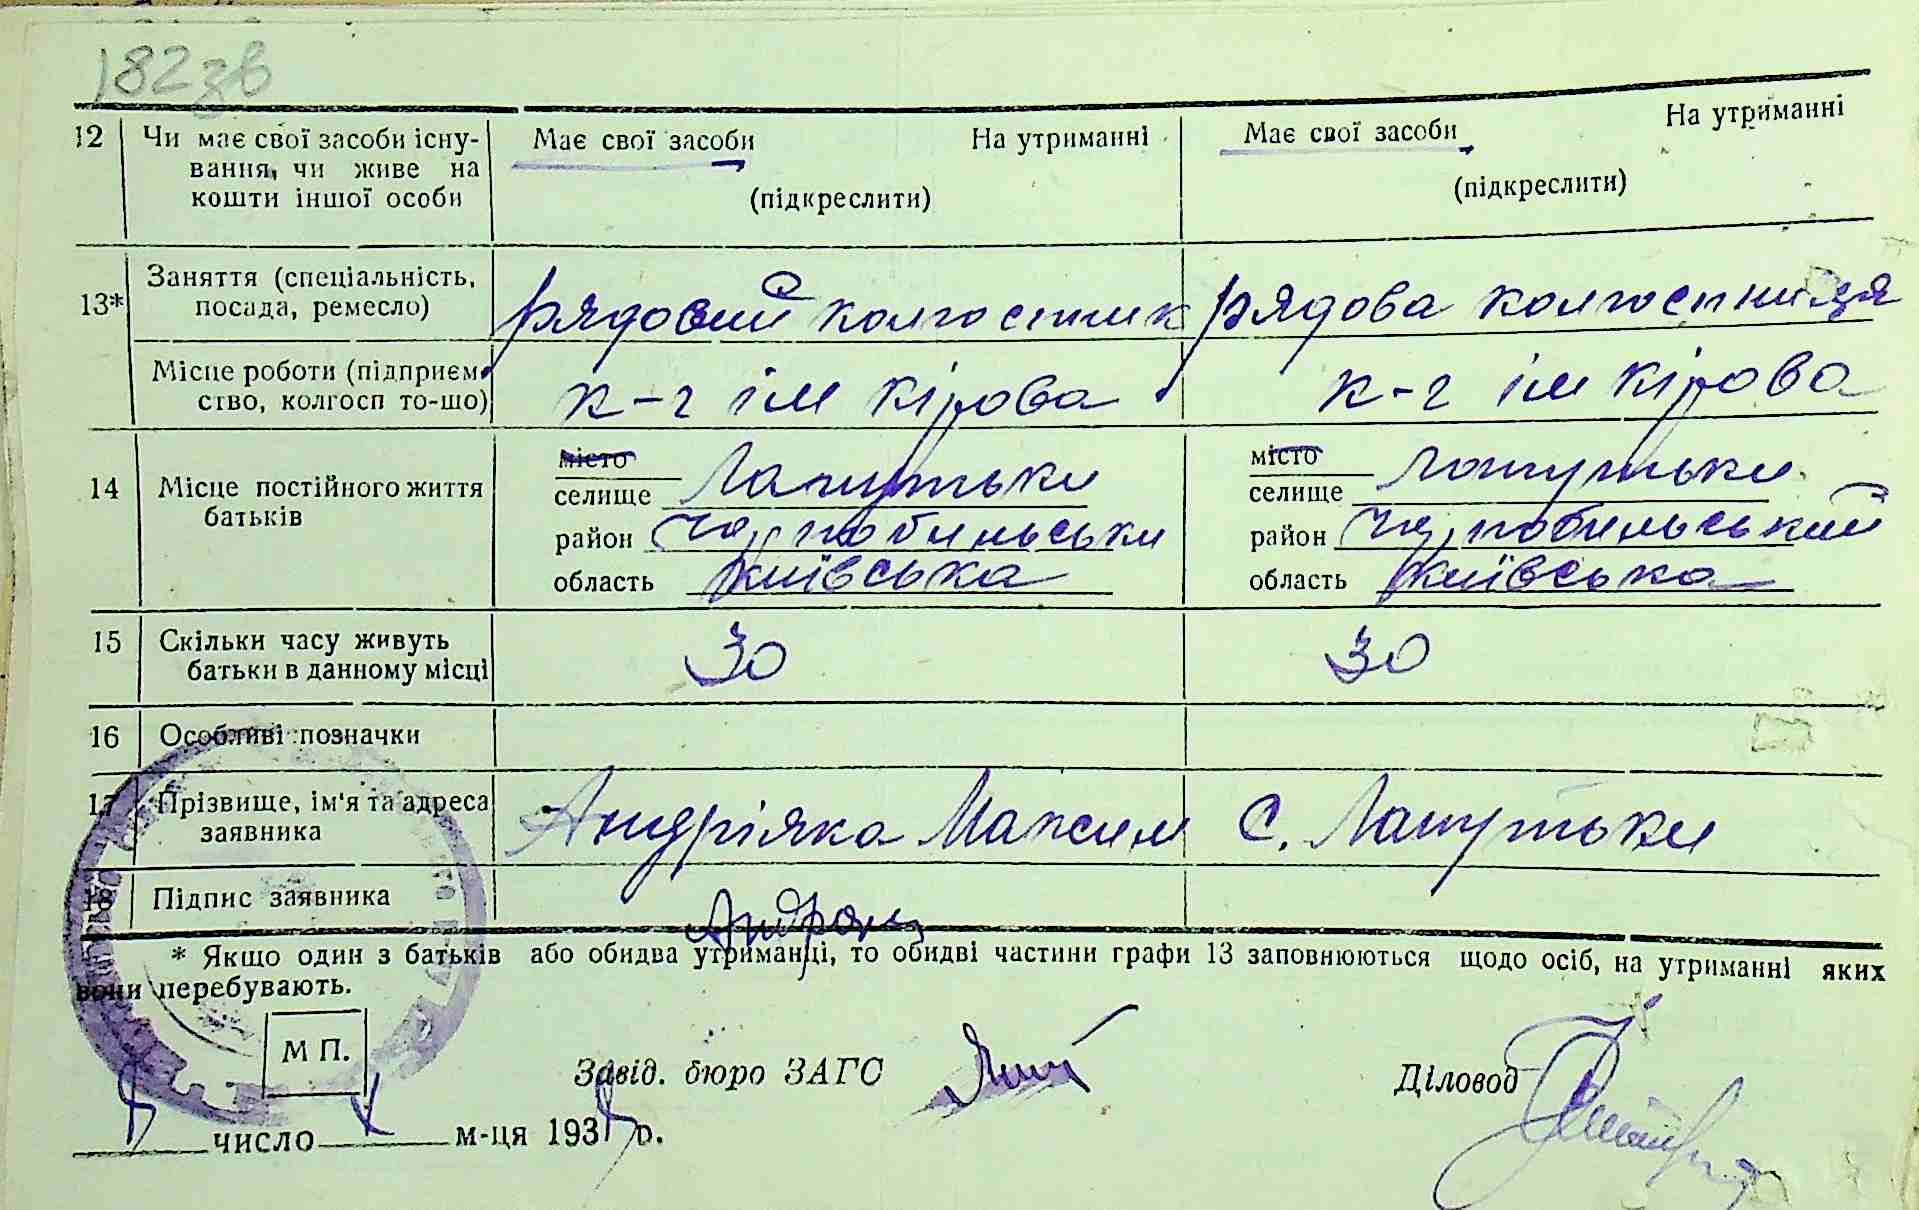 182 зв
12 Чи має свої засоби існу- Має свої засоби На утриманні Має свої засоби На утриманні
вання, чи живе на
кошти іншої особи (підкреслити) (підкреслити)
13* Заняття (спеціальність,
посада, ремесло) рядовий колгоспник рядова колгоспниця
Місце роботи (підприєм-
ство, колгосп то-що) к-г ім кірова к-г ім кірова
14 Місце постійного життя
батьків
місто
селище Лапутьки
район Чорнобильськи
область Київська
місто
селище Лапутьки
район Чорнобильський
область Київська
15 Скільки часу живуть
батьки в данному місці 30 30
16 Особливі позначки
17 Прізвище, ім'я та адреса
заявника Андріяка Максим с. Лапутьки
18 Підпис заявника
* Якщо один з батьків або обидва утриманці, то обидві частини графи 13 заповнюються щодо осіб, на утриманні яких
вони перебувають.
М П.
Завід. бюро ЗАГС Діловод
число м-ця 193 р.